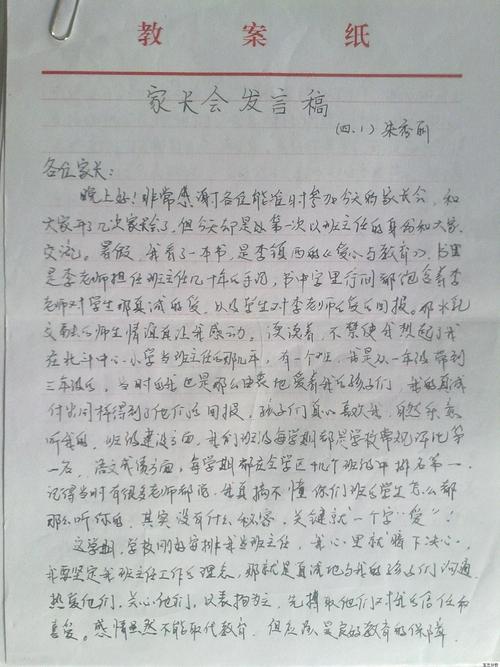 教案纸
家长会发言稿
(四.1) 朱秀丽
各位家长:
晚上好!非常感谢各位能准时参加今天的家长会,和
大家开了几次家长会了,但今天却是第一次以班主任的身份和大家
交流。暑假,我看了一本书,是李镇西的《爱心与教育》,书里
是李老师担任班主任几十年的手记,书中字里行间都包含着李
老师对学生那真诚的爱,以及学生对李老师的爱的回报。那水乳
交融的师生情谊真让我感动。读读着,不禁使我想起了我
在北斗中心小学当班主任的那几年,有一个班,我是从一年级带到
三年级的,当时的我也是那么由衷地爱着我的孩子们,我的真诚
付出同样得到了他们的回报,孩子们真心喜欢我,自然乐意
听我的,班级建设方面,我们班级每学期都是学校常规评比第
一名,语文成绩方面,每学期都在全学区几个班级中排名第一。
记得当时有很多老师都说,我真搞不懂你们班的学生怎么都
那么听你的,其实没有什么秘密,关键就一个字“爱”!
这学期,学校刚好安排我当班主任,我心里就暗下决心,
我要坚定我班主任工作的理念,那就是真诚地与我的孩子们沟通,
热爱他们,关心他们,以表扬为主,先博取他们对我的信任和
喜爱。感情虽然不能取代教育,但应该是良好的教育的保障,